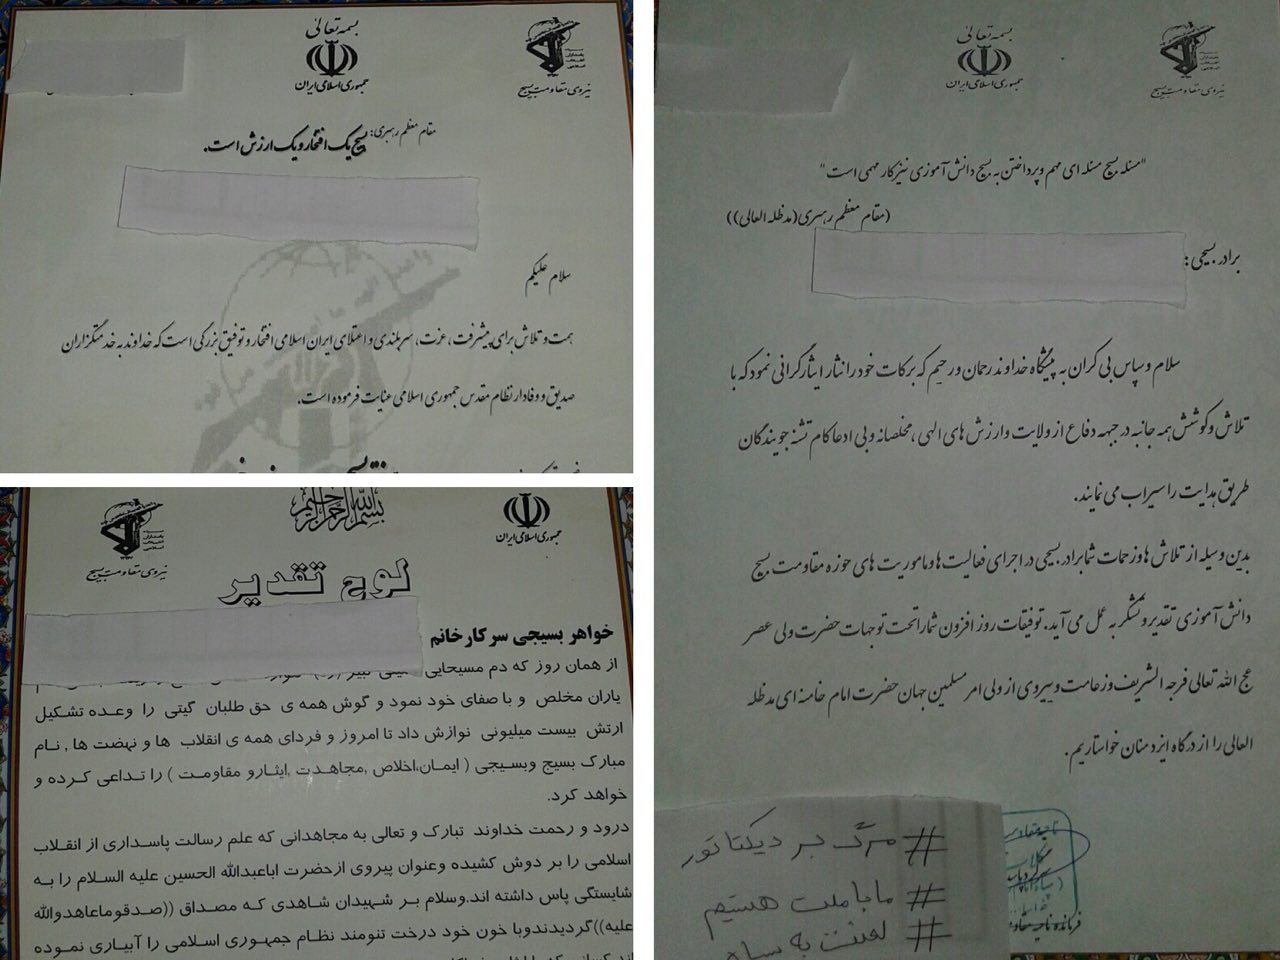 بسمه تعالی
جمهوری اسلامی ایران
نیروی مقاومت بسیج
مقام معظم رهبری:
بسیج یک افتخار و یک ارزش است.
سلام علیکم
همت و تلاش برای پیشرفت، عزت، سربلندی و اعتلای ایران اسلامی افتخار و توفیق بزرگی است که خداوند به خدمتگزاران
صدیق و وفادار نظام مقدس جمهوری اسلامی عنایت فرموده است.
بسم الله الرحمن الرحیم
جمهوری اسلامی ایران
نیروی مقاومت بسیج
لوح تقدیر
خواهر بسیجی سرکار خانم
از همان روز که دم مسیحایی
یاران مخلص و با صفای خود نمود و گوش همه ی حق طلبان گیتی را وعده تشکیل
ارتش بیست میلیونی نوازش داد تا امروز و فردای همه ی انقلاب ها و نهضت ها, نام
مبارک بسیج وبسیجی ( ایمان,اخلاص ,مجاهدت ,ایثارو مقاومت ) را تداعی کرده و
خواهد کرد.
درود و رحمت خداوند تبارک و تعالی به مجاهدانی که علم رسالت پاسداری از انقلاب
اسلامی را بر دوش کشیده وعنوان پیروی ازحضرت اباعبدالله الحسین علیه السلام را به
شایستگی پاس داشته اند.وسلام بر شهیدان شاهدی که مصداق ((صدقوماعاهدوالله
علیه))گردیدندوبا خون خود درخت تنومند نظام جمهوری اسلامی را آبیاری نموده
بسمه تعالی
جمهوری اسلامی ایران
نیروی مقاومت بسیج
"مسئله بسیج مسئله ای مهم و پرداختن به بسیج دانش آموزی نیز کار مهمی است"
(مقام معظم رهبری(مدظله العالی))
برادر بسیجی:
سلام و سپاس بی کران به پیشگاه خداوند رحمان و رحیم که برکات خود را نثار ایثارگرانی نمود که با
تلاش و کوشش همه جانبه در جبهه دفاع از ولایت و ارزش های الهی ،مخلصانه و بی ادعا کام تشنه جویندگان
طریق هدایت را سیراب می نمایند.
بدین وسیله از تلاش ها و زحمات شما برادر بسیجی در اجرای فعالیت ها و ماموریت های حوزه مقاومت بسیج
دانش آموزی تقدیر و تشکر به عمل می آید. توفیقات روز افزون شما را تحت توجهات حضرت ولی عصر
عج الله تعالی فرجه الشریف و زعامت و پیروی از ولی امر مسلمین جهان حضرت امام خامنه ای مدظله
العالی را از درگاه ایزد منان خواستاریم.
فرمانده ناحیه مقاومت
# مرگ بر دیکتاتور
# ما با ملت هستیم
# لعنت به سپاه